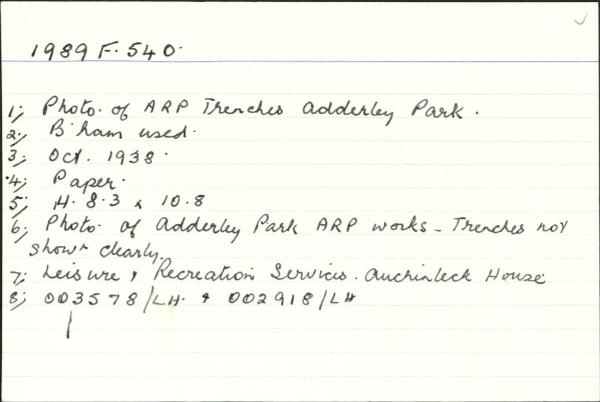 1989 F. 540.
1; Photo. of ARP Trenches Adderley Park.
2; B'ham used.
3; Oct. 1938.
4; Paper.
5; H. 8.3 x 10.8
6; Photo. of Adderley Park ARP works - Trenches not
shown clearly.
7; Leisure & Recreation Services. Auchinleck House
8; 003578/LH. & 002918/LH